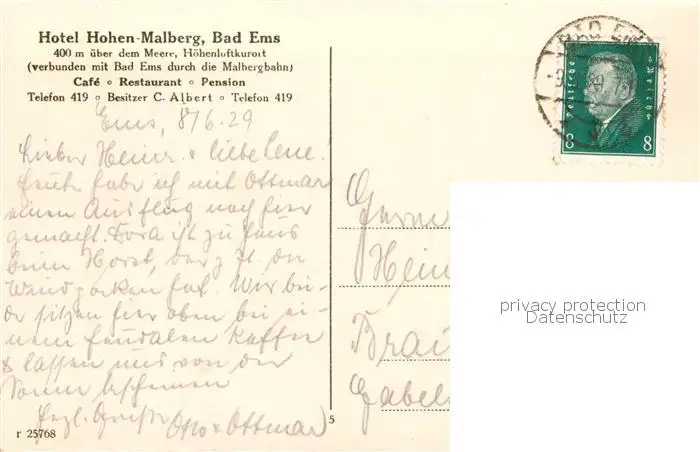 Hotel Hohen-Malberg, Bad Ems
400 m über dem Meere, Höhenluftkurort
(verbunden mit Bad Ems durch die Malbergbahn)
Café ∘ Restaurant ∘ Pension
Telefon 419 ∘ Besitzer C. Albert ∘ Telefon 419
Ems, 8/6.29
Lieber Heinr. & liebe Lene.
Heute habe ich mit Ottmar
einen Ausflug nach hier
gemacht. Dora ist zu Haus
beim Horst, der z. Zt. die
Windpocken hat. Wir bei-
de sitzen hier oben bei ei-
nem feudalen Kaffee
& lassen uns von der
Sonne bescheinen
Herzl. Grüße Otto & Ottmar
r 25768
5
BAD EMS
Deutsches Reich
8 8
Herrn
Hein
Brau
Gabels
privacy protection
Datenschutz